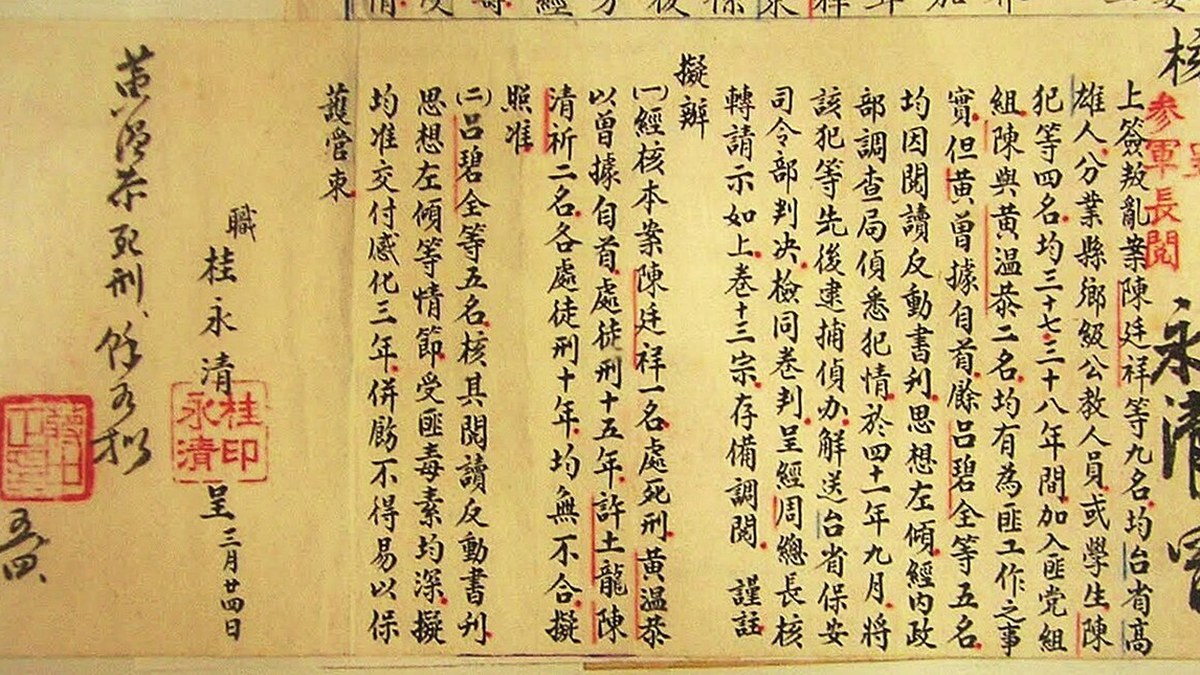 核
永清
參軍長閱
上簽叛亂案陳廷祥等九名均台省高
雄人分業縣鄉級公教人員或學生陳
犯等四名均三十七、三十八年間加入匪党組
組陳與黃温恭二名均有為匪工作之事
實但黃曾據自首餘呂碧全等五名
均因閱讀反動書刋思想左傾經內政
部調查局偵悉犯情於四十一年九月將
該犯等先後逮捕偵办解送台省保安
司令部判決檢同卷判呈經周總長核
轉請示如上卷十三宗存備調閱 謹註
擬辦
(一)經核本案陳廷祥一名處死刑黃温恭
以曾據自首處徒刑十五年許土龍陳
清祈二名各處徒刑十年均無不合擬
照准
(二)呂碧全等五名核其閱讀反動書刋
思想左傾等情節受匪毒素均深擬
均准交付感化三年併飭不得易以保
護管束
職 桂永清 呈 三月廿四日
桂永清印
黃温恭死刑、餘如擬